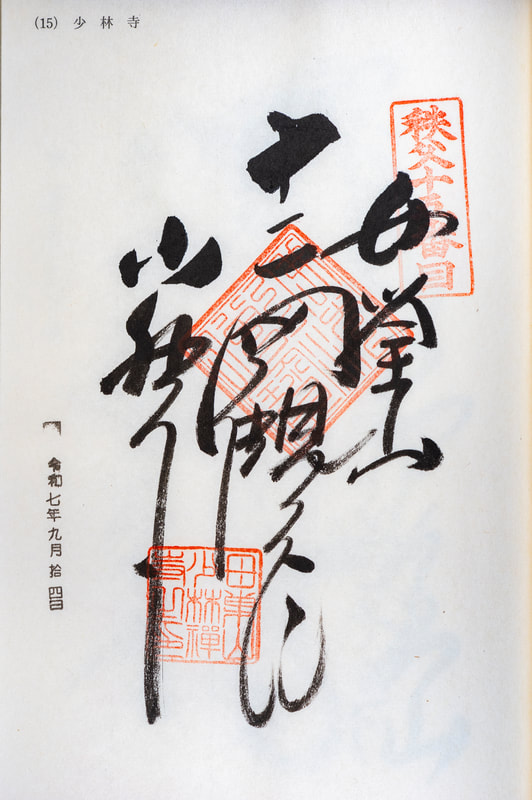 (15) 少林寺
秩父十五番目
母巣山
十一面観世音
少林寺
令和七年九月拾四日